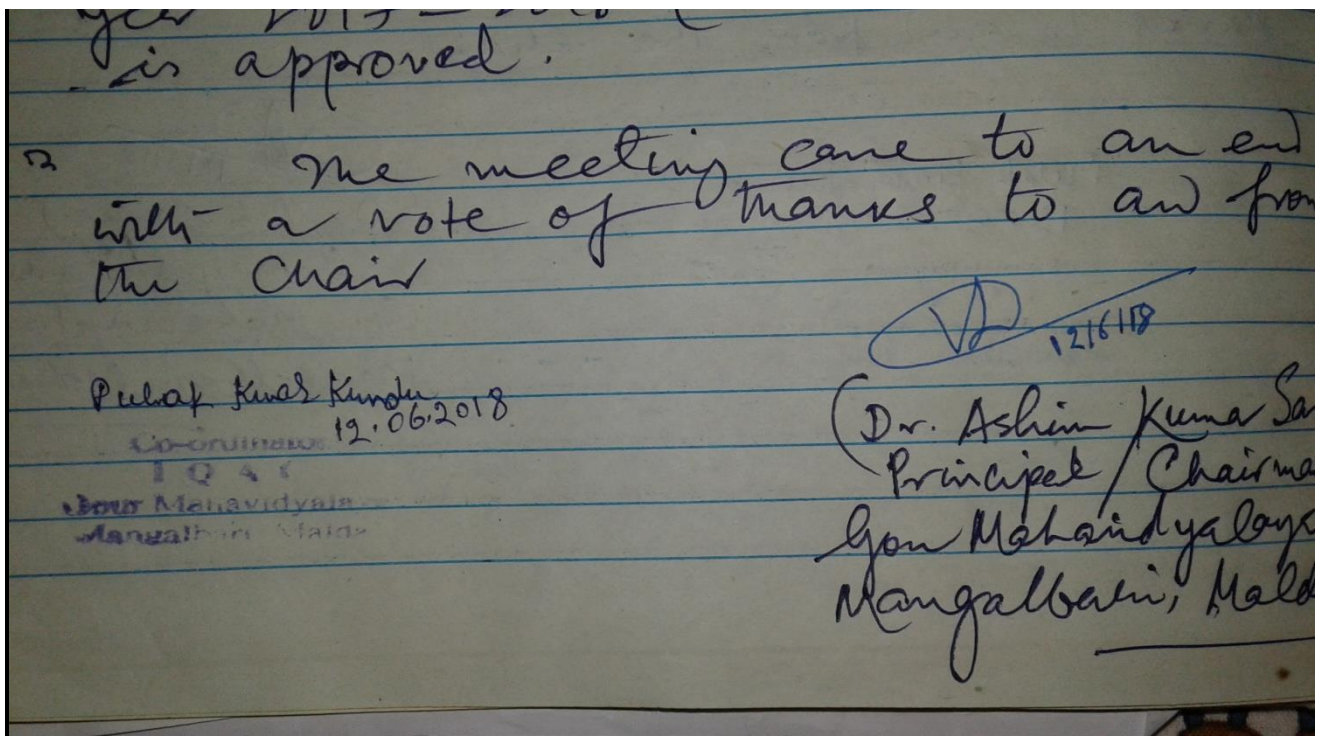 is approved.
The meeting came to an end
with a vote of thanks to and from
the Chair
12/6/18
Pulak Kumar Kundu
12.06.2018
Co-ordinator
IQAC
Gour Mahavidyala
Mangalbari Malda
(Dr. Ashim Kumar Sar
Principal / Chairma
Gour Mahavidyalaya
Mangalbari, Mald